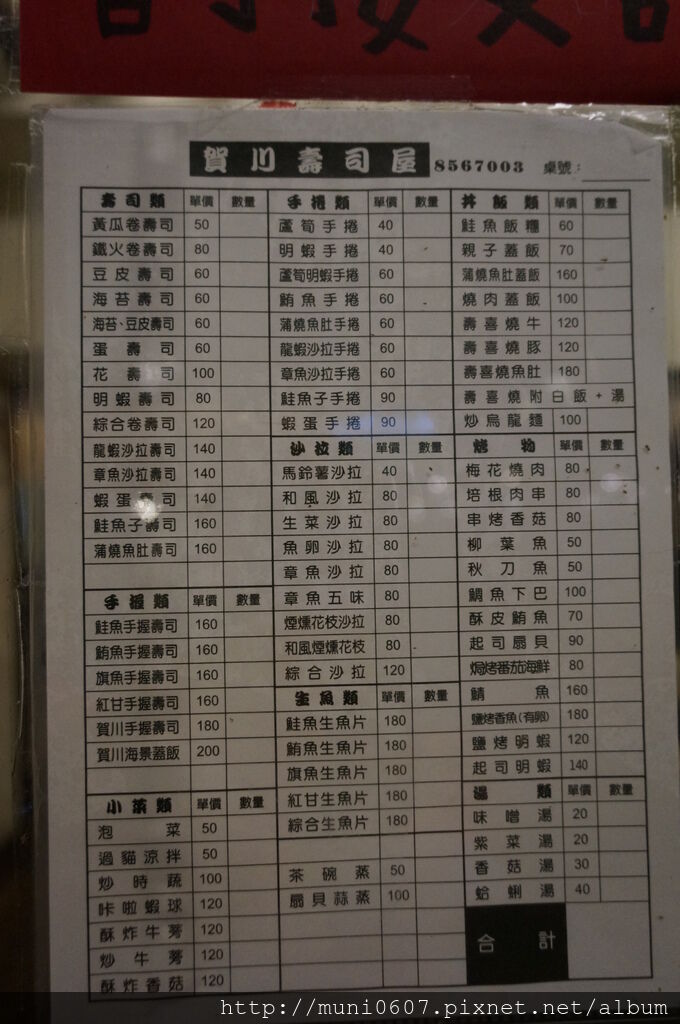 賀川壽司屋 8567003 桌號:
壽司類 單價 數量
黃瓜卷壽司 50
鐵火卷壽司 80
豆皮壽司 60
海苔壽司 60
海苔、豆皮壽司 60
蛋壽司 60
花壽司 100
明蝦壽司 80
綜合卷壽司 120
龍蝦沙拉壽司 140
章魚沙拉壽司 140
蝦蛋壽司 140
鮭魚子壽司 160
蒲燒魚肚壽司 160
手握類 單價 數量
鮭魚手握壽司 160
鮪魚手握壽司 160
旗魚手握壽司 160
紅甘手握壽司 160
賀川手握壽司 180
賀川海景蓋飯 200
小菜類 單價 數量
泡菜 50
過貓涼拌 50
炒時蔬 100
咔啦蝦球 120
酥炸牛蒡 120
炒牛蒡 120
酥炸香菇 120
手捲類 單價 數量
蘆筍手捲 40
明蝦手捲 40
蘆筍明蝦手捲 60
鮪魚手捲 60
蒲燒魚肚手捲 60
龍蝦沙拉手捲 60
章魚沙拉手捲 60
鮭魚子手捲 90
蝦蛋手捲 90
沙拉類 單價 數量
馬鈴薯沙拉 40
和風沙拉 80
生菜沙拉 80
魚卵沙拉 80
章魚沙拉 80
章魚五味 80
煙燻花枝沙拉 80
和風煙燻花枝 80
綜合沙拉 120
生魚類 單價 數量
鮭魚生魚片 180
鮪魚生魚片 180
旗魚生魚片 180
紅甘生魚片 180
綜合生魚片 180
茶碗蒸 50
扇貝蒜蒸 100
丼飯類 單價 數量
鮭魚飯糰 60
親子蓋飯 70
蒲燒魚肚蓋飯 160
燒肉蓋飯 100
壽喜燒牛 120
壽喜燒豚 120
壽喜燒魚肚 180
壽喜燒附白飯+湯
炒烏龍麵 100
烤物 單價 數量
梅花燒肉 80
培根肉串 80
串烤香菇 80
柳葉魚 50
秋刀魚 50
鯛魚下巴 100
酥皮鮪魚 70
起司扇貝 90
焗烤番茄海鮮 80
鯖魚 160
鹽烤香魚(有卵) 180
鹽烤明蝦 120
起司明蝦 140
湯類 單價 數量
味噌湯 20
紫菜湯 20
香菇湯 30
蛤蜊湯 40
合計
http://muni0607.pixnet.net/album